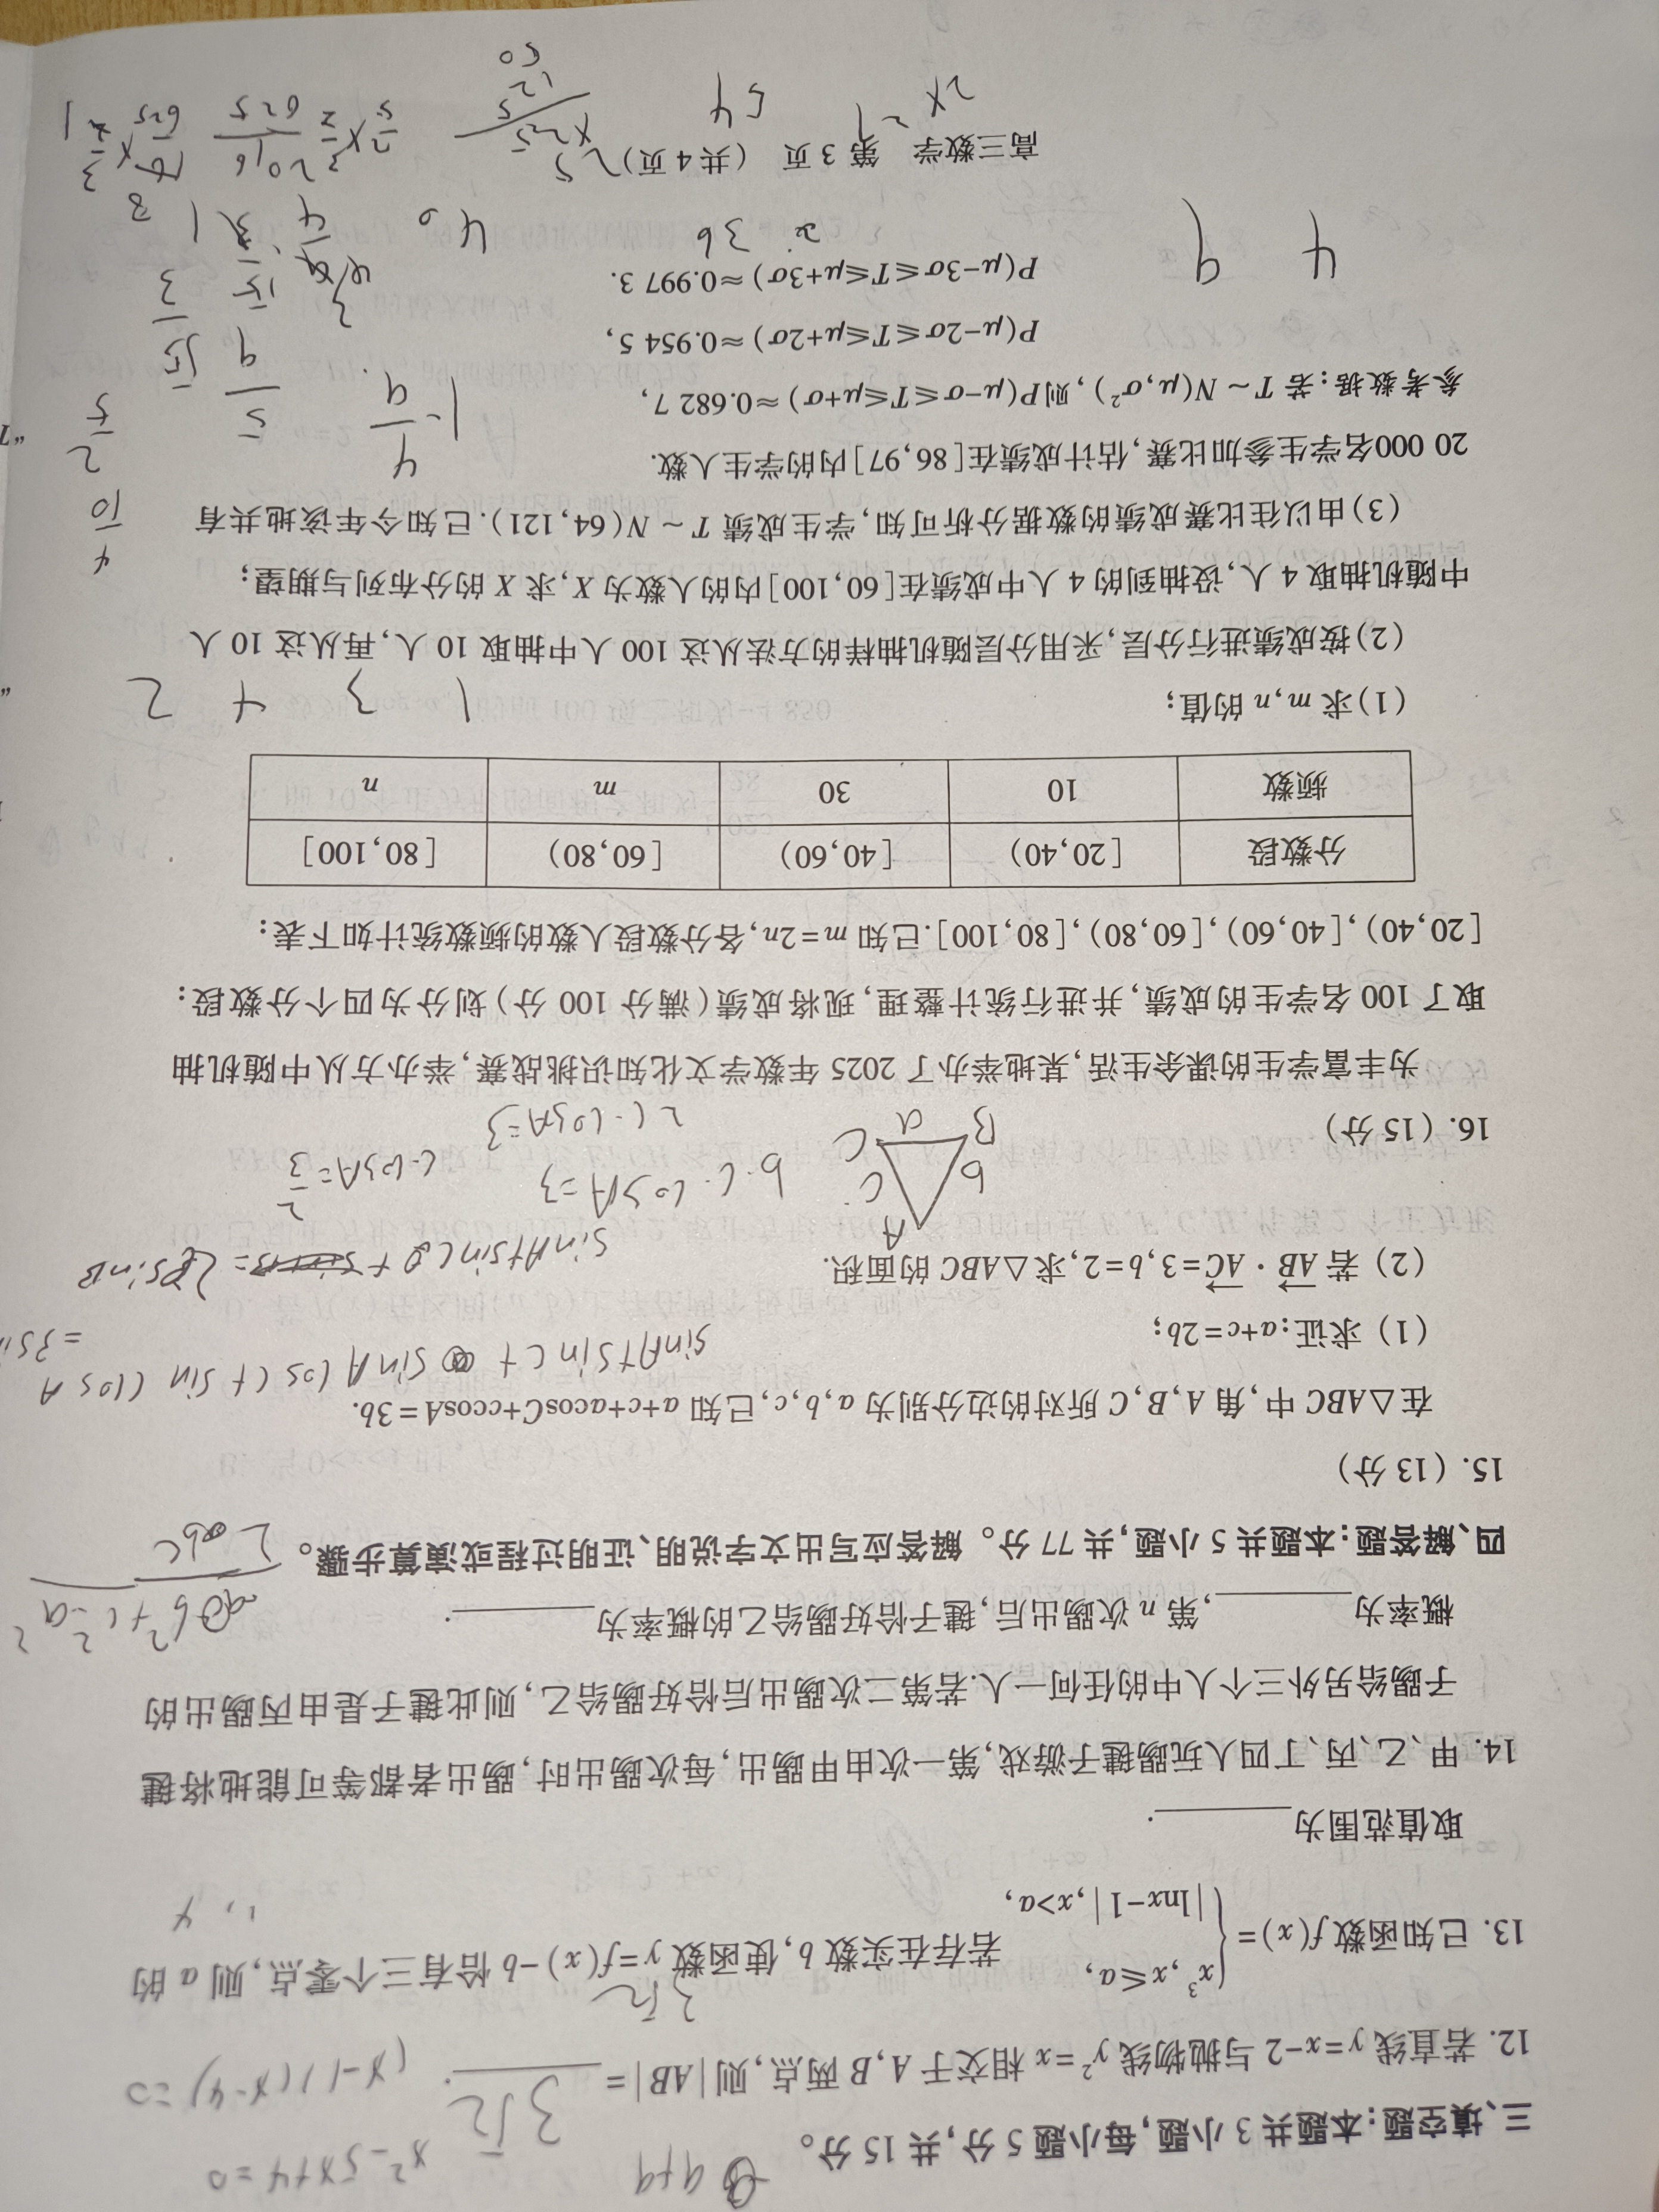 三、填空题:本题共 3 小题,每小题 5 分,共 15 分。
x²-5x+4=0
12. 若直线 y=x-2 与抛物线 y²=x 相交于 A,B 两点,则|AB|=3√2.
(x-1)(x-4)=0
3√2
13. 已知函数 f(x)={x³,x≤a, |lnx-1|,x>a, 若存在实数 b,使函数 y=f(x)-b 恰有三个零点,则 a 的
取值范围为________.
1, 4
14. 甲、乙、丙、丁四人玩踢毽子游戏,第一次由甲踢出,每次踢出时,踢出者都等可能地将毽
子踢给另外三个人中的任何一人.若第二次踢出后恰好踢给乙,则此毽子是由丙踢出的
概率为________,第 n 次踢出后,毽子恰好踢给乙的概率为________.
b²+c²-a²
四、解答题:本题共 5 小题,共 77 分。解答应写出文字说明、证明过程或演算步骤。
15. (13 分)
在△ABC 中,角 A,B,C 所对的边分别为 a,b,c,已知 a+c+acosC+ccosA=3b.
sinA+sinC+sinAcosC+sinCcosA
=3si
(1) 求证:a+c=2b;
(2) 若 AB·AC=3,b=2,求△ABC 的面积.
sinA+sinC
=2sinB
A
b
c
B
a
C
b·c·cosA=3
c·cosA=3/2
2c·cosA=3
16. (15 分)
为丰富学生的课余生活,某地举办了 2025 年数学文化知识挑战赛,举办方从中随机抽
取了 100 名学生的成绩,并进行统计整理,现将成绩(满分 100 分)划分为四个分数段:
[20,40),[40,60),[60,80),[80,100].已知 m=2n,各分数段人数的频数统计如下表:
分数段 [20,40) [40,60) [60,80) [80,100]
频数 10 30 m n
(1)求 m,n 的值;
1 3 4 2
(2)按成绩进行分层,采用分层随机抽样的方法从这 100 人中抽取 10 人,再从这 10 人
中随机抽取 4 人,设抽到的 4 人中成绩在[60,100]内的人数为 X,求 X 的分布列与期望;
(3)由以往比赛成绩的数据分析可知,学生成绩 T~N(64,121).已知今年该地共有
20 000名学生参加比赛,估计成绩在[86,97]内的学生人数.
4/10
2/5
参考数据:若 T~N(μ,σ²),则 P(μ-σ≤T≤μ+σ)≈0.682 7,
P(μ-2σ≤T≤μ+2σ)≈0.954 5,
P(μ-3σ≤T≤μ+3σ)≈0.997 3.
1-4/9
5/9
√5/3
4 9
36
40
高三数学 第 3 页 (共 4 页)
54
125
16/625